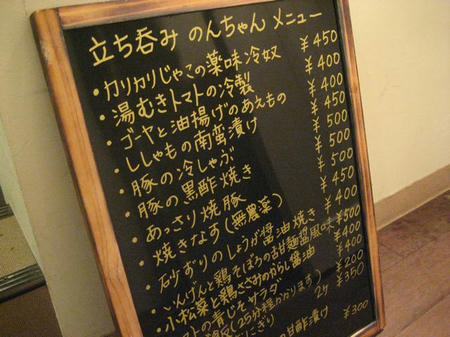 立ち呑み のんちゃん メニュー
・カリカリじゃこの薬味冷奴 ¥450
・湯むきトマトの冷製 ¥400
・ゴーヤと油揚げのあえもの ¥400
・ししゃもの南蛮漬け ¥450
・豚の冷しゃぶ ¥500
・豚の黒酢焼き ¥500
・あっさり焼豚 ¥500
・焼きなす(無農薬) ¥450
・砂ずりのしょうが醤油焼き ¥400
・いんげんと鶏そぼろの甘麺醤風味 ¥500
・小松菜と鶏ささみのからし醤油 ¥400
トの青じそサラダ ¥400
(25分程かかります) ¥200
にぎり 2ケ ¥350
甘酢漬け ¥300